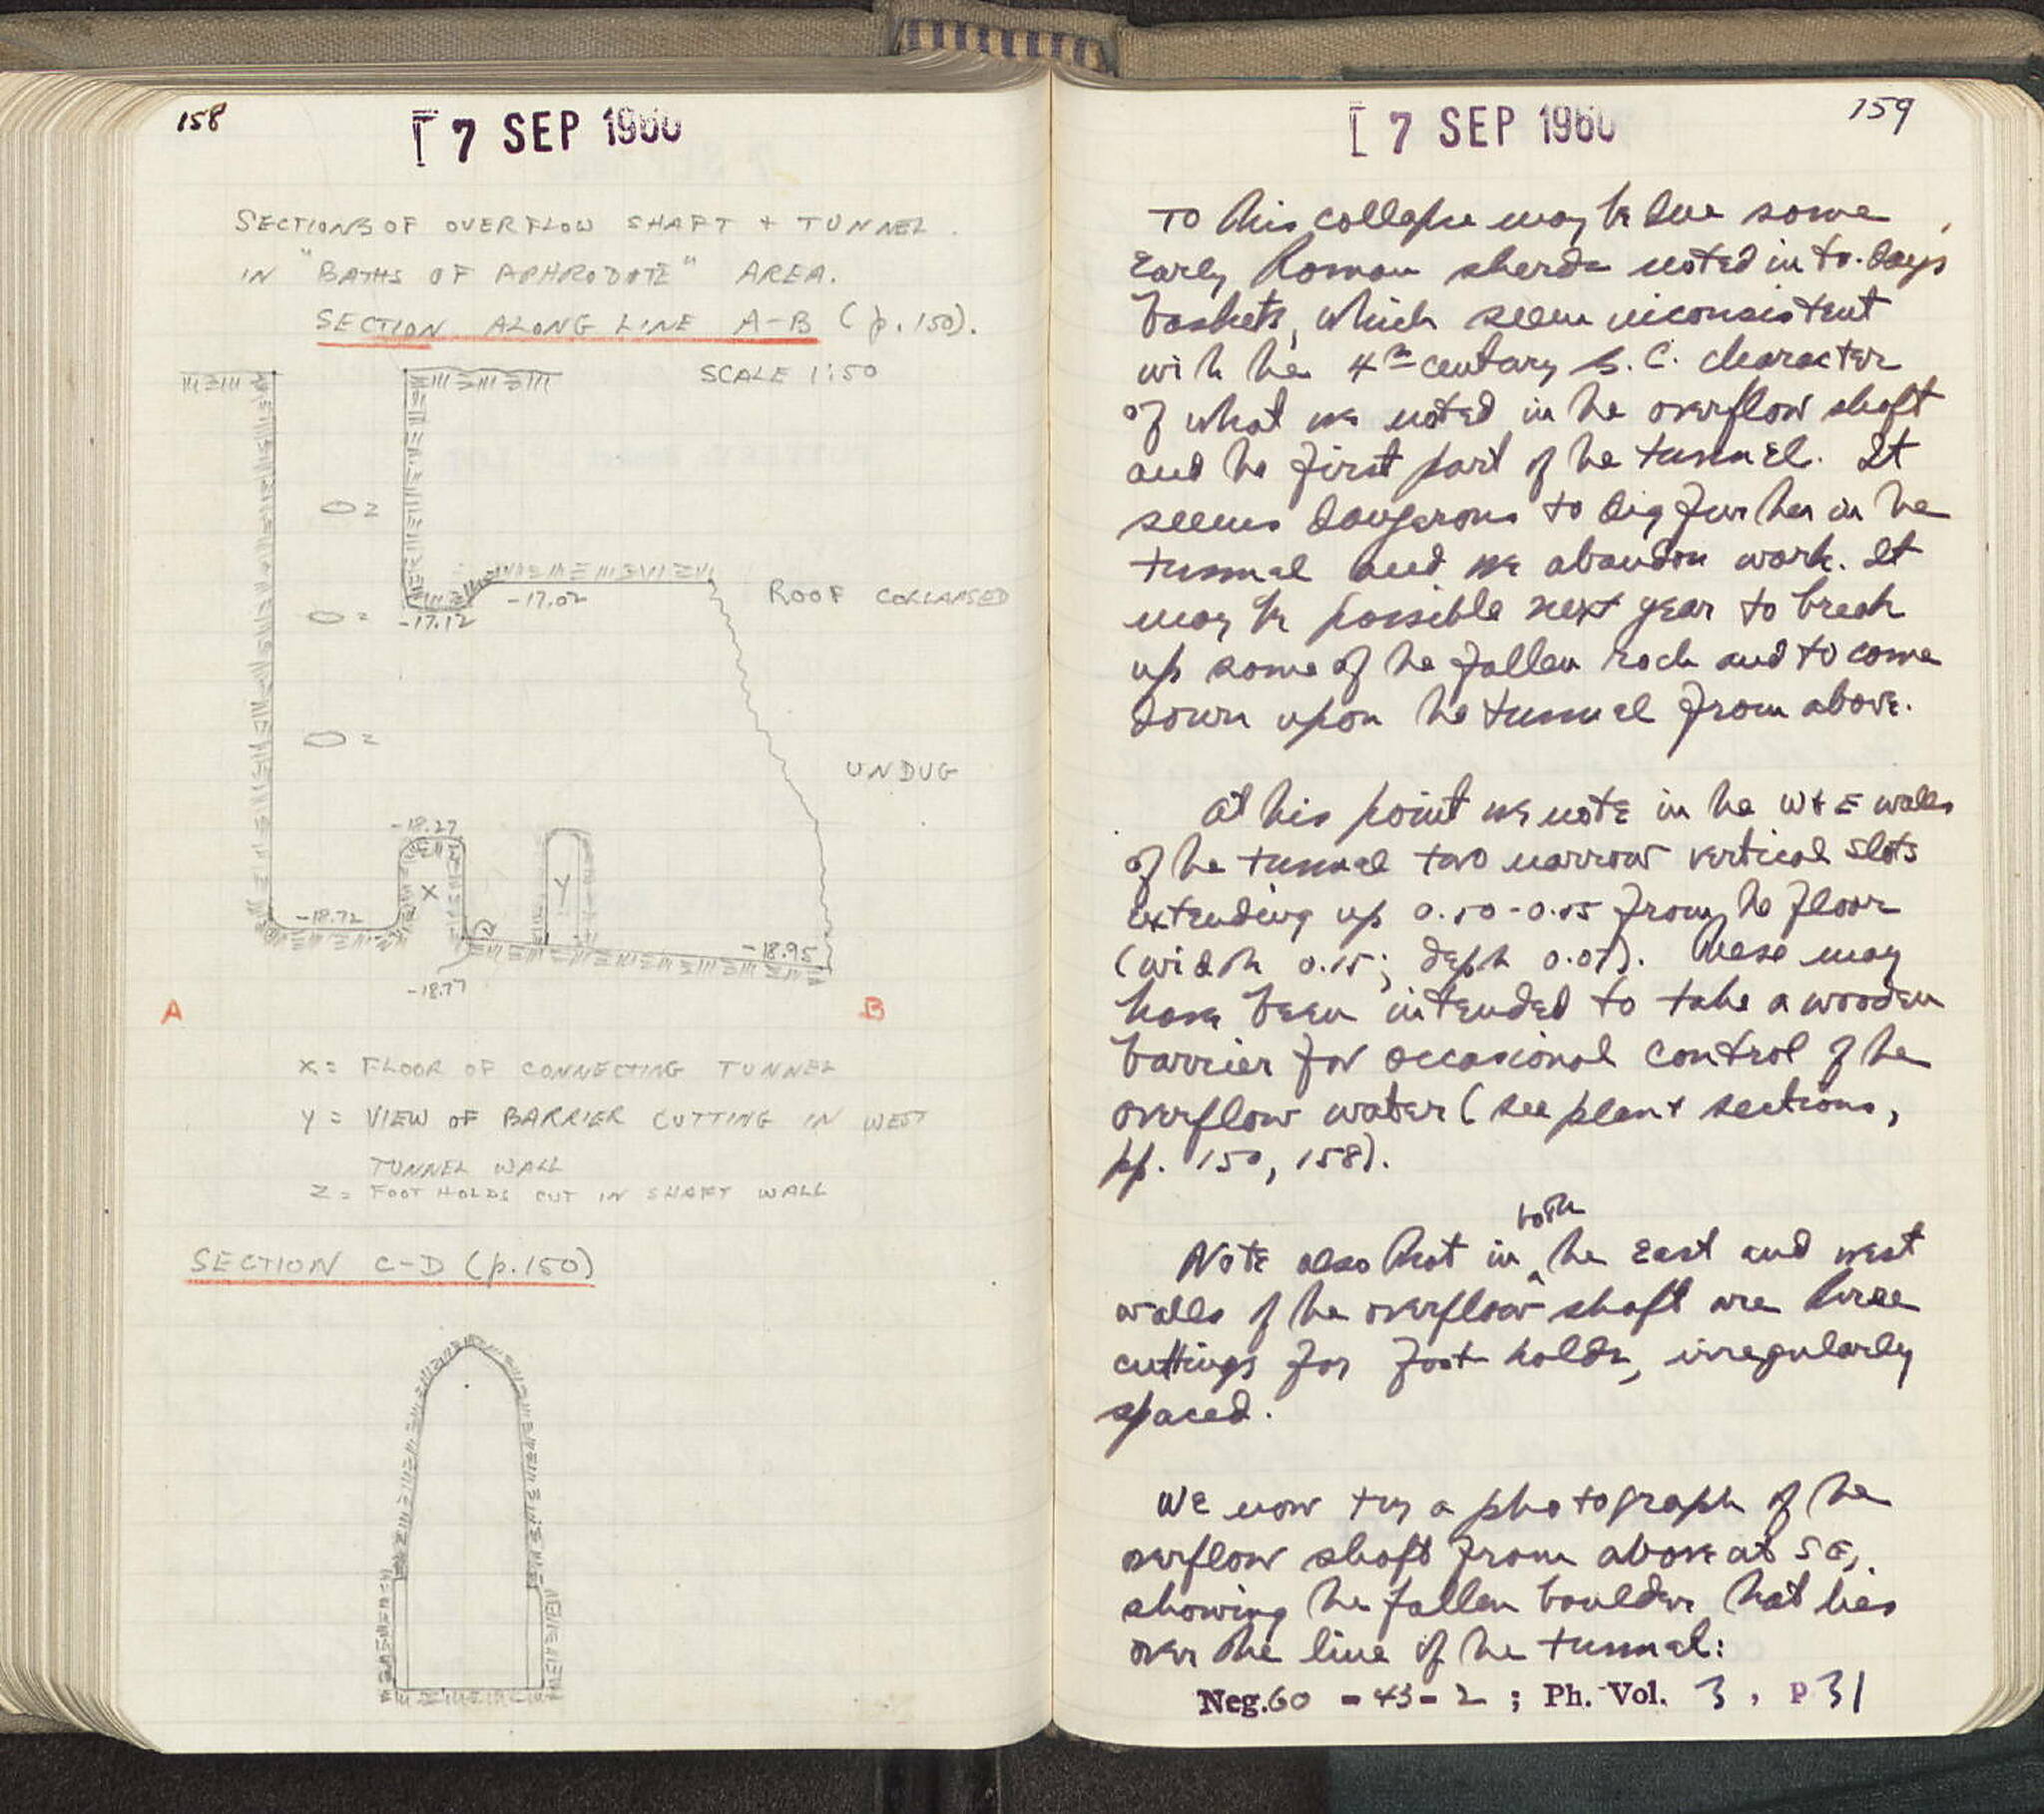 158
7 SEP 1960
SECTIONS OF OVERFLOW SHAFT + TUNNEL
IN "BATHS OF APHRODITE" AREA.
SECTION ALONG LINE A-B (p. 150).
SCALE 1:50
Z
-17.02
ROOF COLLAPSED
Z
-17.12
Z
UNDUG
-18.27
X
Y
-18.72
-18.95
-18.77
A
B
X = FLOOR OF CONNECTING TUNNEL
Y = VIEW OF BARRIER CUTTING IN WEST
TUNNEL WALL
Z = FOOT HOLDS CUT IN SHAFT WALL
SECTION C-D (p. 150)
159
7 SEP 1960
To this collapse may be due some
Early Roman sherds noted in to-days
baskets, which seem inconsistent
with the 4th century B.C. character
of what we noted in the overflow shaft
and the first part of the tunnel. It
seems dangerous to dig further in the
tunnel and we abandon work. It
may be possible next year to break
up some of the fallen rock and to come
down upon the tunnel from above.
At this point we note in the W + E walls
of the tunnel two narrow vertical slots
extending up 0.50-0.55 from the floor
(width 0.15; depth 0.07). These may
have been intended to take a wooden
barrier for occasional control of the
overflow water (see plan + sections,
pp. 150, 158).
Note also that in both the East and West
walls of the overflow shaft are three
cuttings for foot holds, irregularly
spaced.
We now try a photograph of the
overflow shaft from above at SE,
showing the fallen boulder that lies
over the line of the tunnel:
Neg. 60 - 43 - 2 ; Ph. Vol. 3, p 31